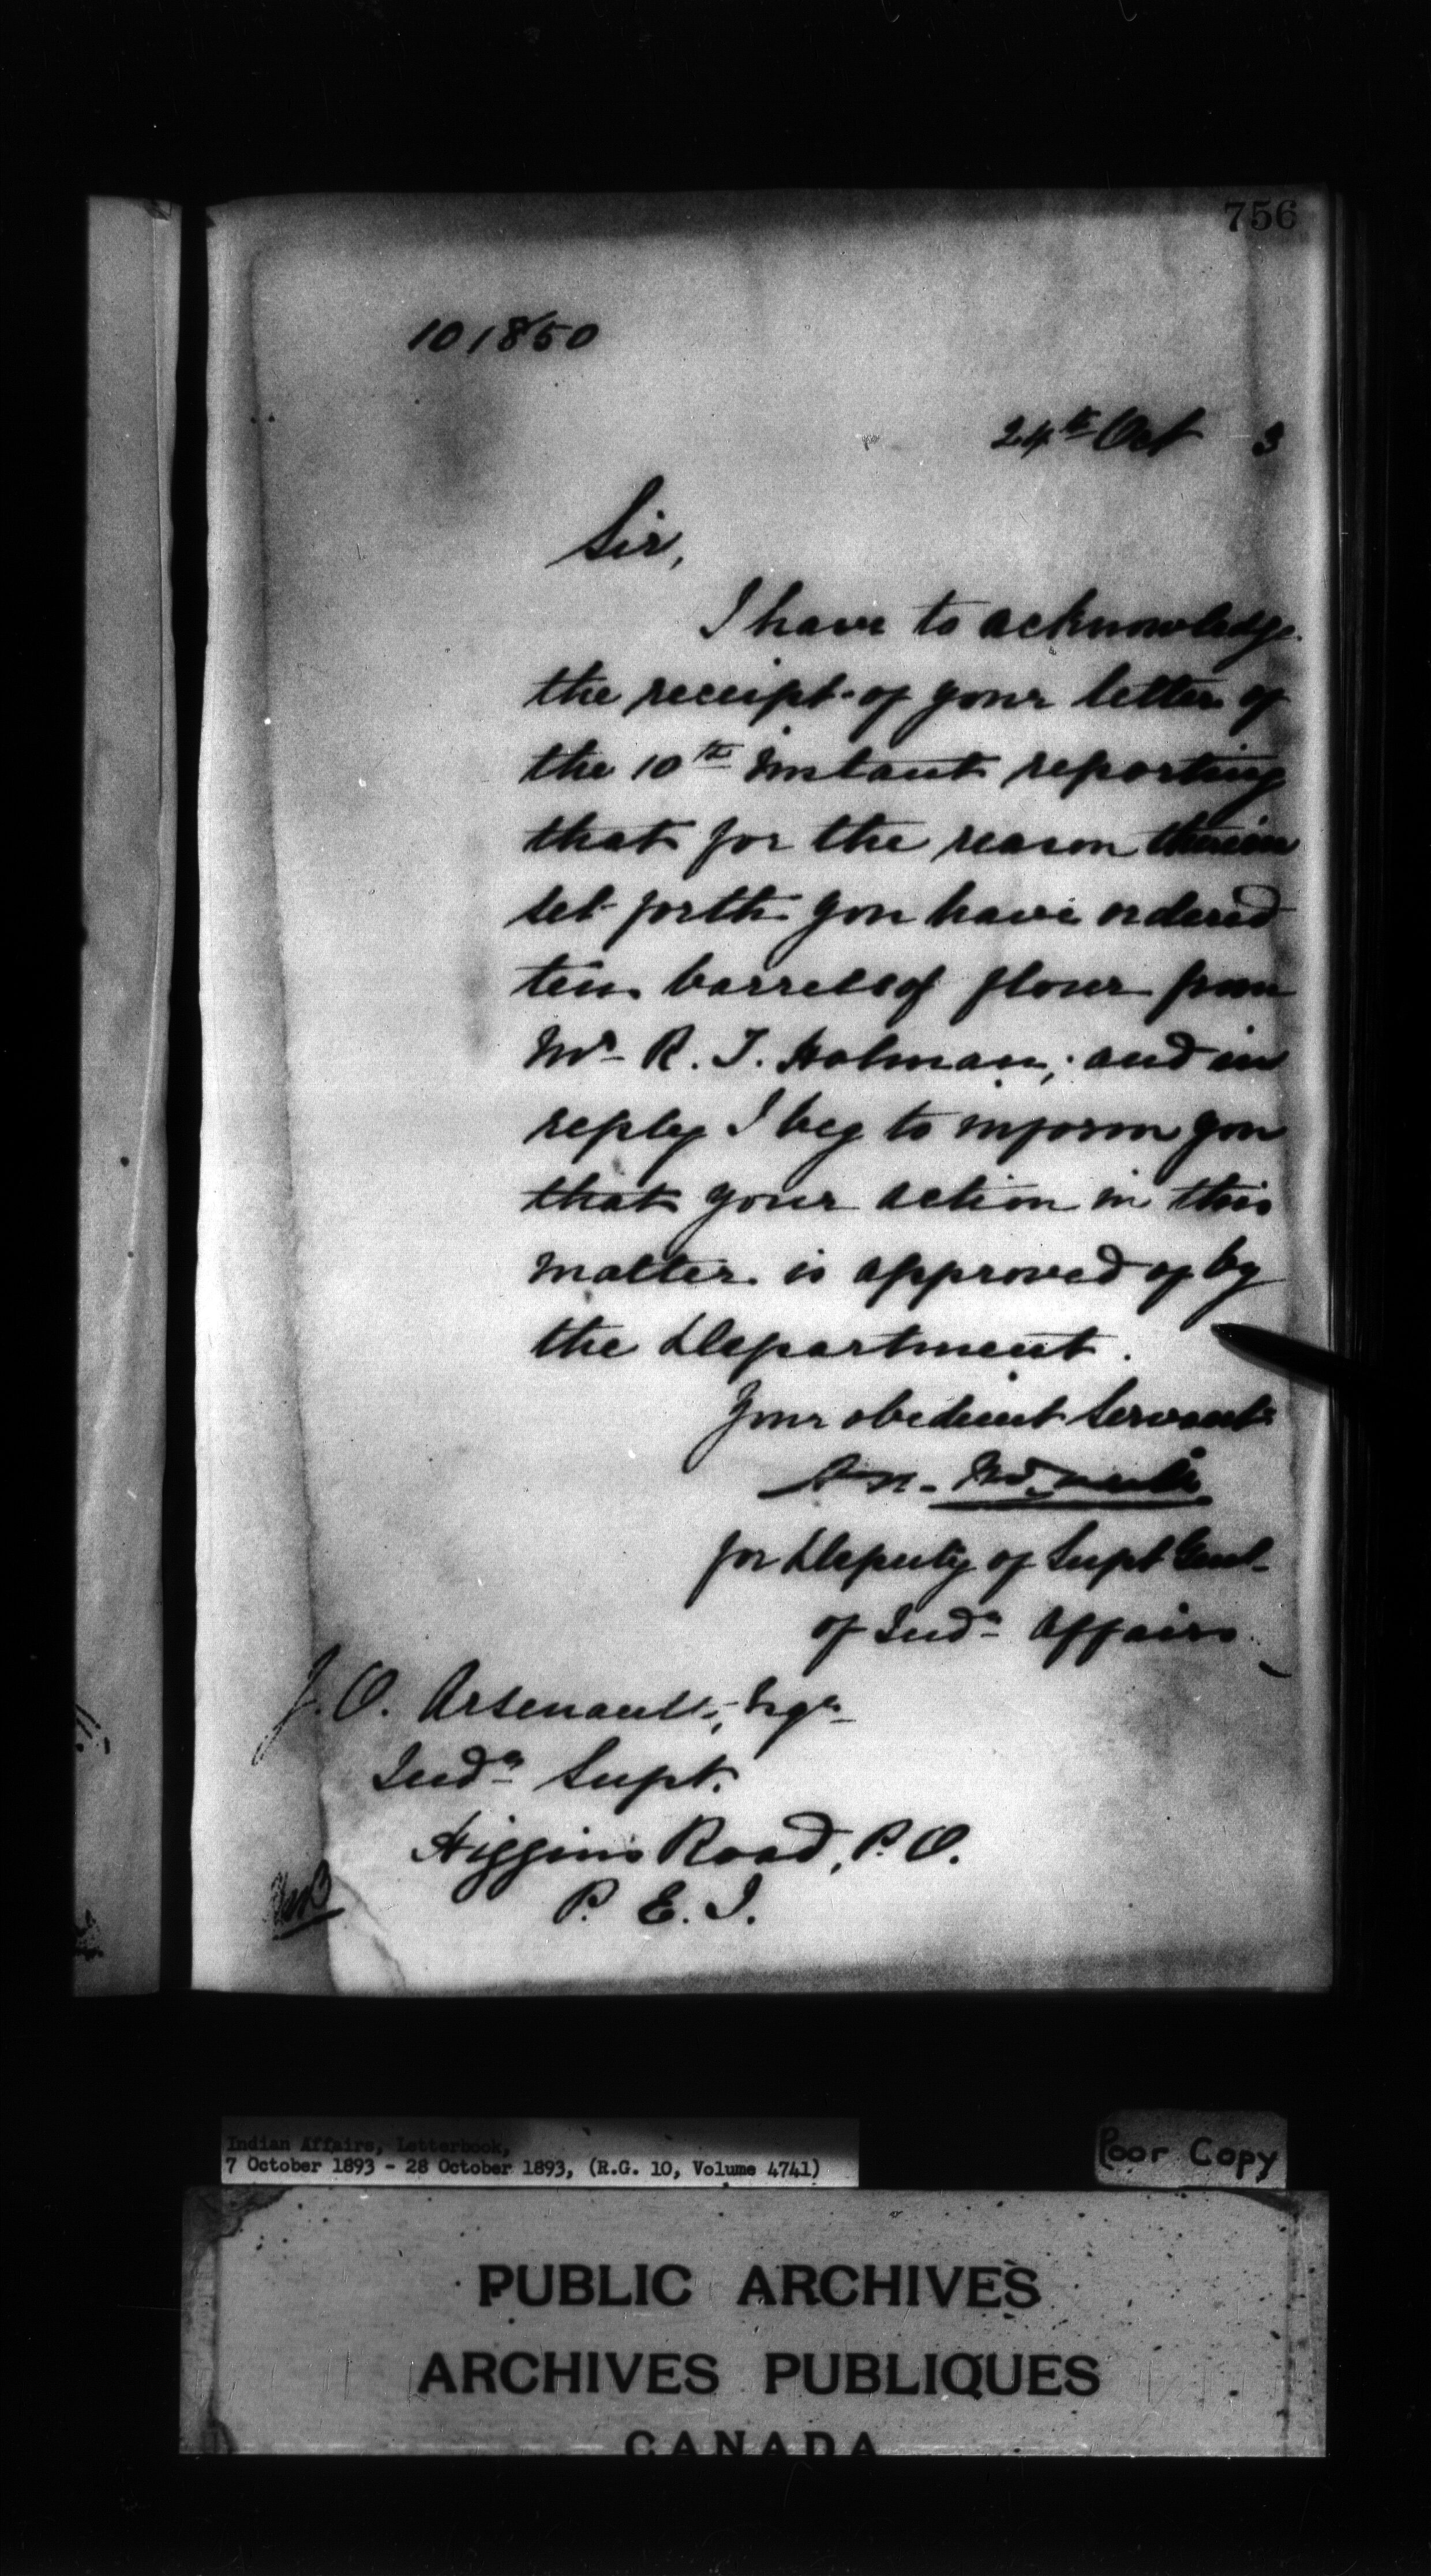 756
101850
24th Oct 3
Sir,
I have to acknowledge
the receipt of your letter of
the 10th instant reporting
that for the reason therein
set forth you have ordered
ten barrels of flour from
Mr R. T. Holman; and in
reply I beg to inform you
that your action in this
matter is approved of by
the Department.
Your obedient servant
for Deputy of Supt Genl
of Indn Affairs
J. O. Arsenault, Esqr
Indn Supt.
Higgins Road, P.O.
P. E. I.
Indian Affairs, Letterbook,
7 October 1893 - 28 October 1893, (R.G. 10, Volume 4741)
Poor Copy
PUBLIC ARCHIVES
ARCHIVES PUBLIQUES
CANADA